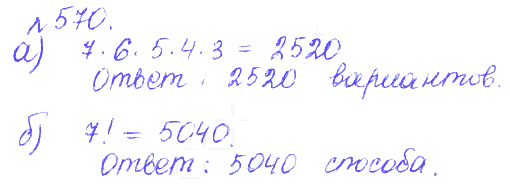 № 570.
а) 7·6·5·4·3 = 2520
Ответ: 2520 вариантов.
б) 7! = 5040.
Ответ: 5040 способа.